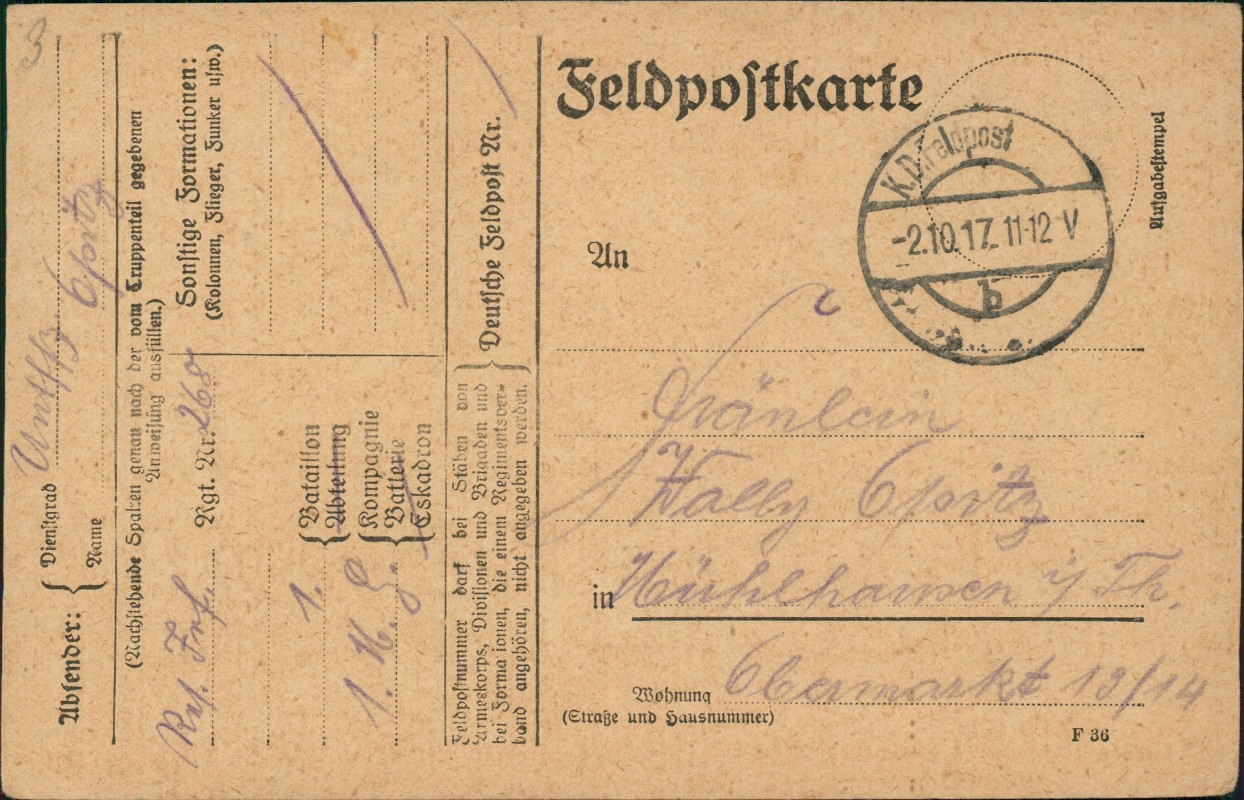 3
Absender:
Dienstgrad Untffz.
Name Opitz
(Nachstehende Spalten genau nach der vom Truppenteil gegebenen
Anweisung ausfüllen.)
Res. Inf. Rgt. Nr. 268
Sonstige Formationen:
(Kolonnen, Flieger, Funker usw.)
1. Bataillon
Abteilung
1. M. G. Kompagnie
Batterie
Eskadron
Feldpostnummer darf bei Stäben von
Armeekorps, Divisionen und Brigaden und
bei Formationen, die einem Regimentsver-
band angehören, nicht angegeben werden.
Deutsche Feldpost Nr.
Feldpostkarte
K.D.Feldpost
-2.10.17. 11-12 V
b
Aufgabestempel
An
Fräulein
Wally Opitz
in Mühlhausen i/Th.
Wohnung Obermarkt 13/14
(Straße und Hausnummer)
F 36